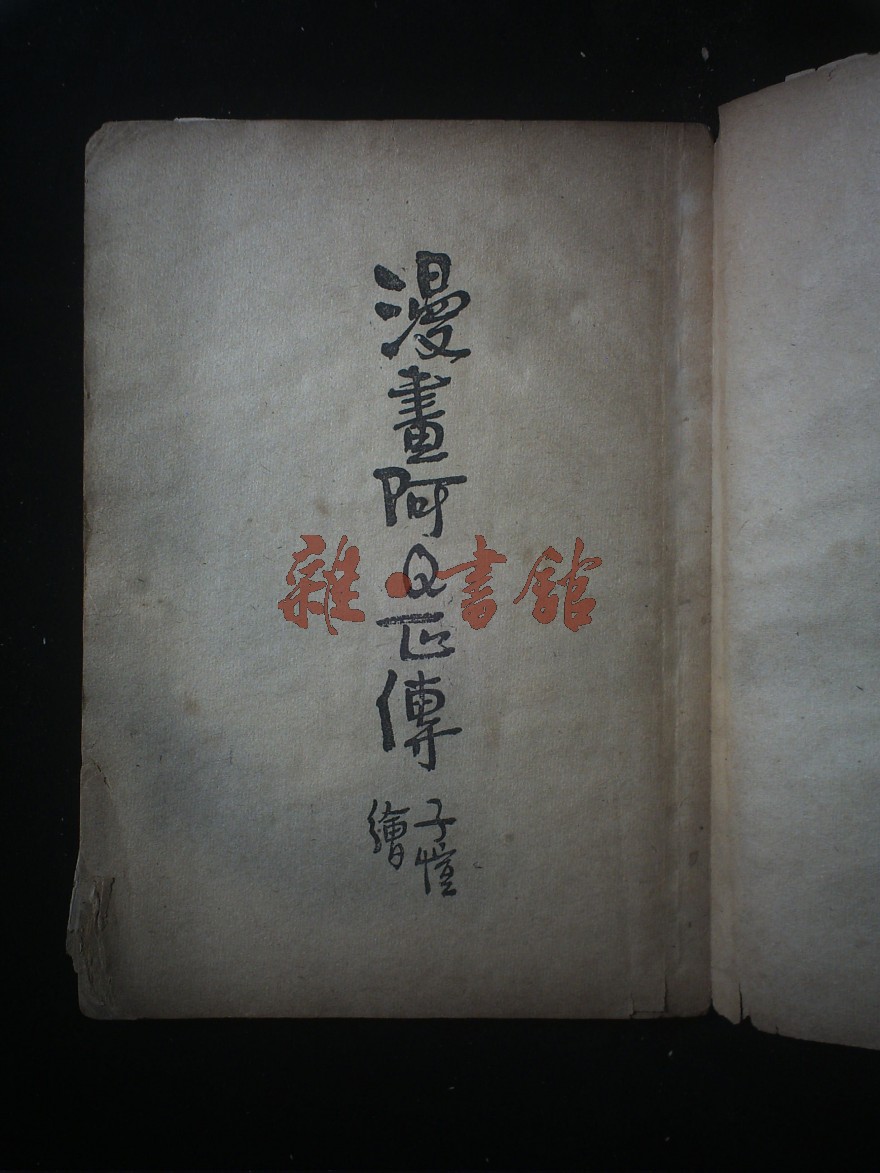 漫畫阿Q正傳
子愷
繪
雜·書館